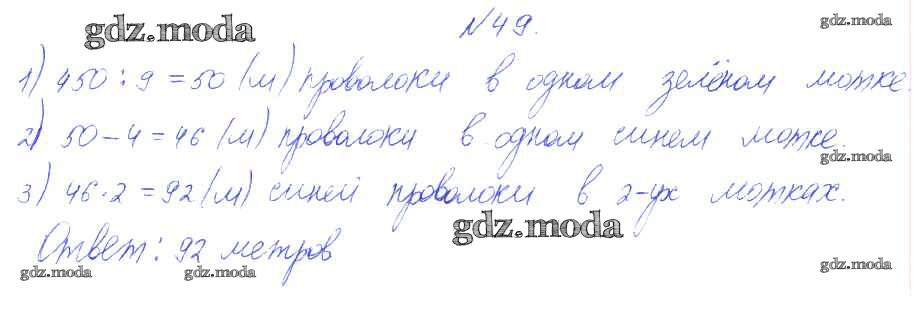 №49.
gdz.moda gdz.moda
1) 450 : 9 = 50 (м) проволоки в одном зелёном мотке.
2) 50 - 4 = 46 (м) проволоки в одном синем мотке.
gdz.moda
3) 46 · 2 = 92 (м) синей проволоки в 2-ух мотках.
gdz.moda
Ответ: 92 метров
gdz.moda gdz.moda gdz.moda